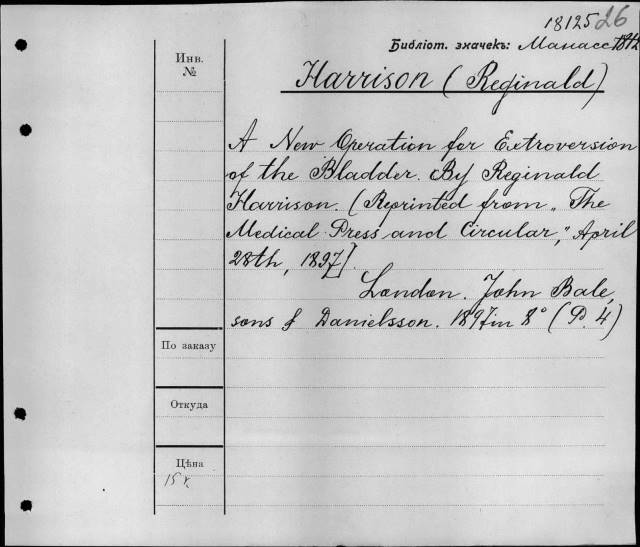 18125 26
Библіот. значекъ: Манасс. 1812
Инв.
№
Harrison (Reginald)
A New Operation for Extroversion
of the Bladder. By Reginald
Harrison. (Reprinted from „The
Medical Press and Circular," April
28th, 1897].
London. John Bale,
sons & Danielsson. 1897 in 8° (P. 4)
По заказу
Откуда
Цѣна
15 к.